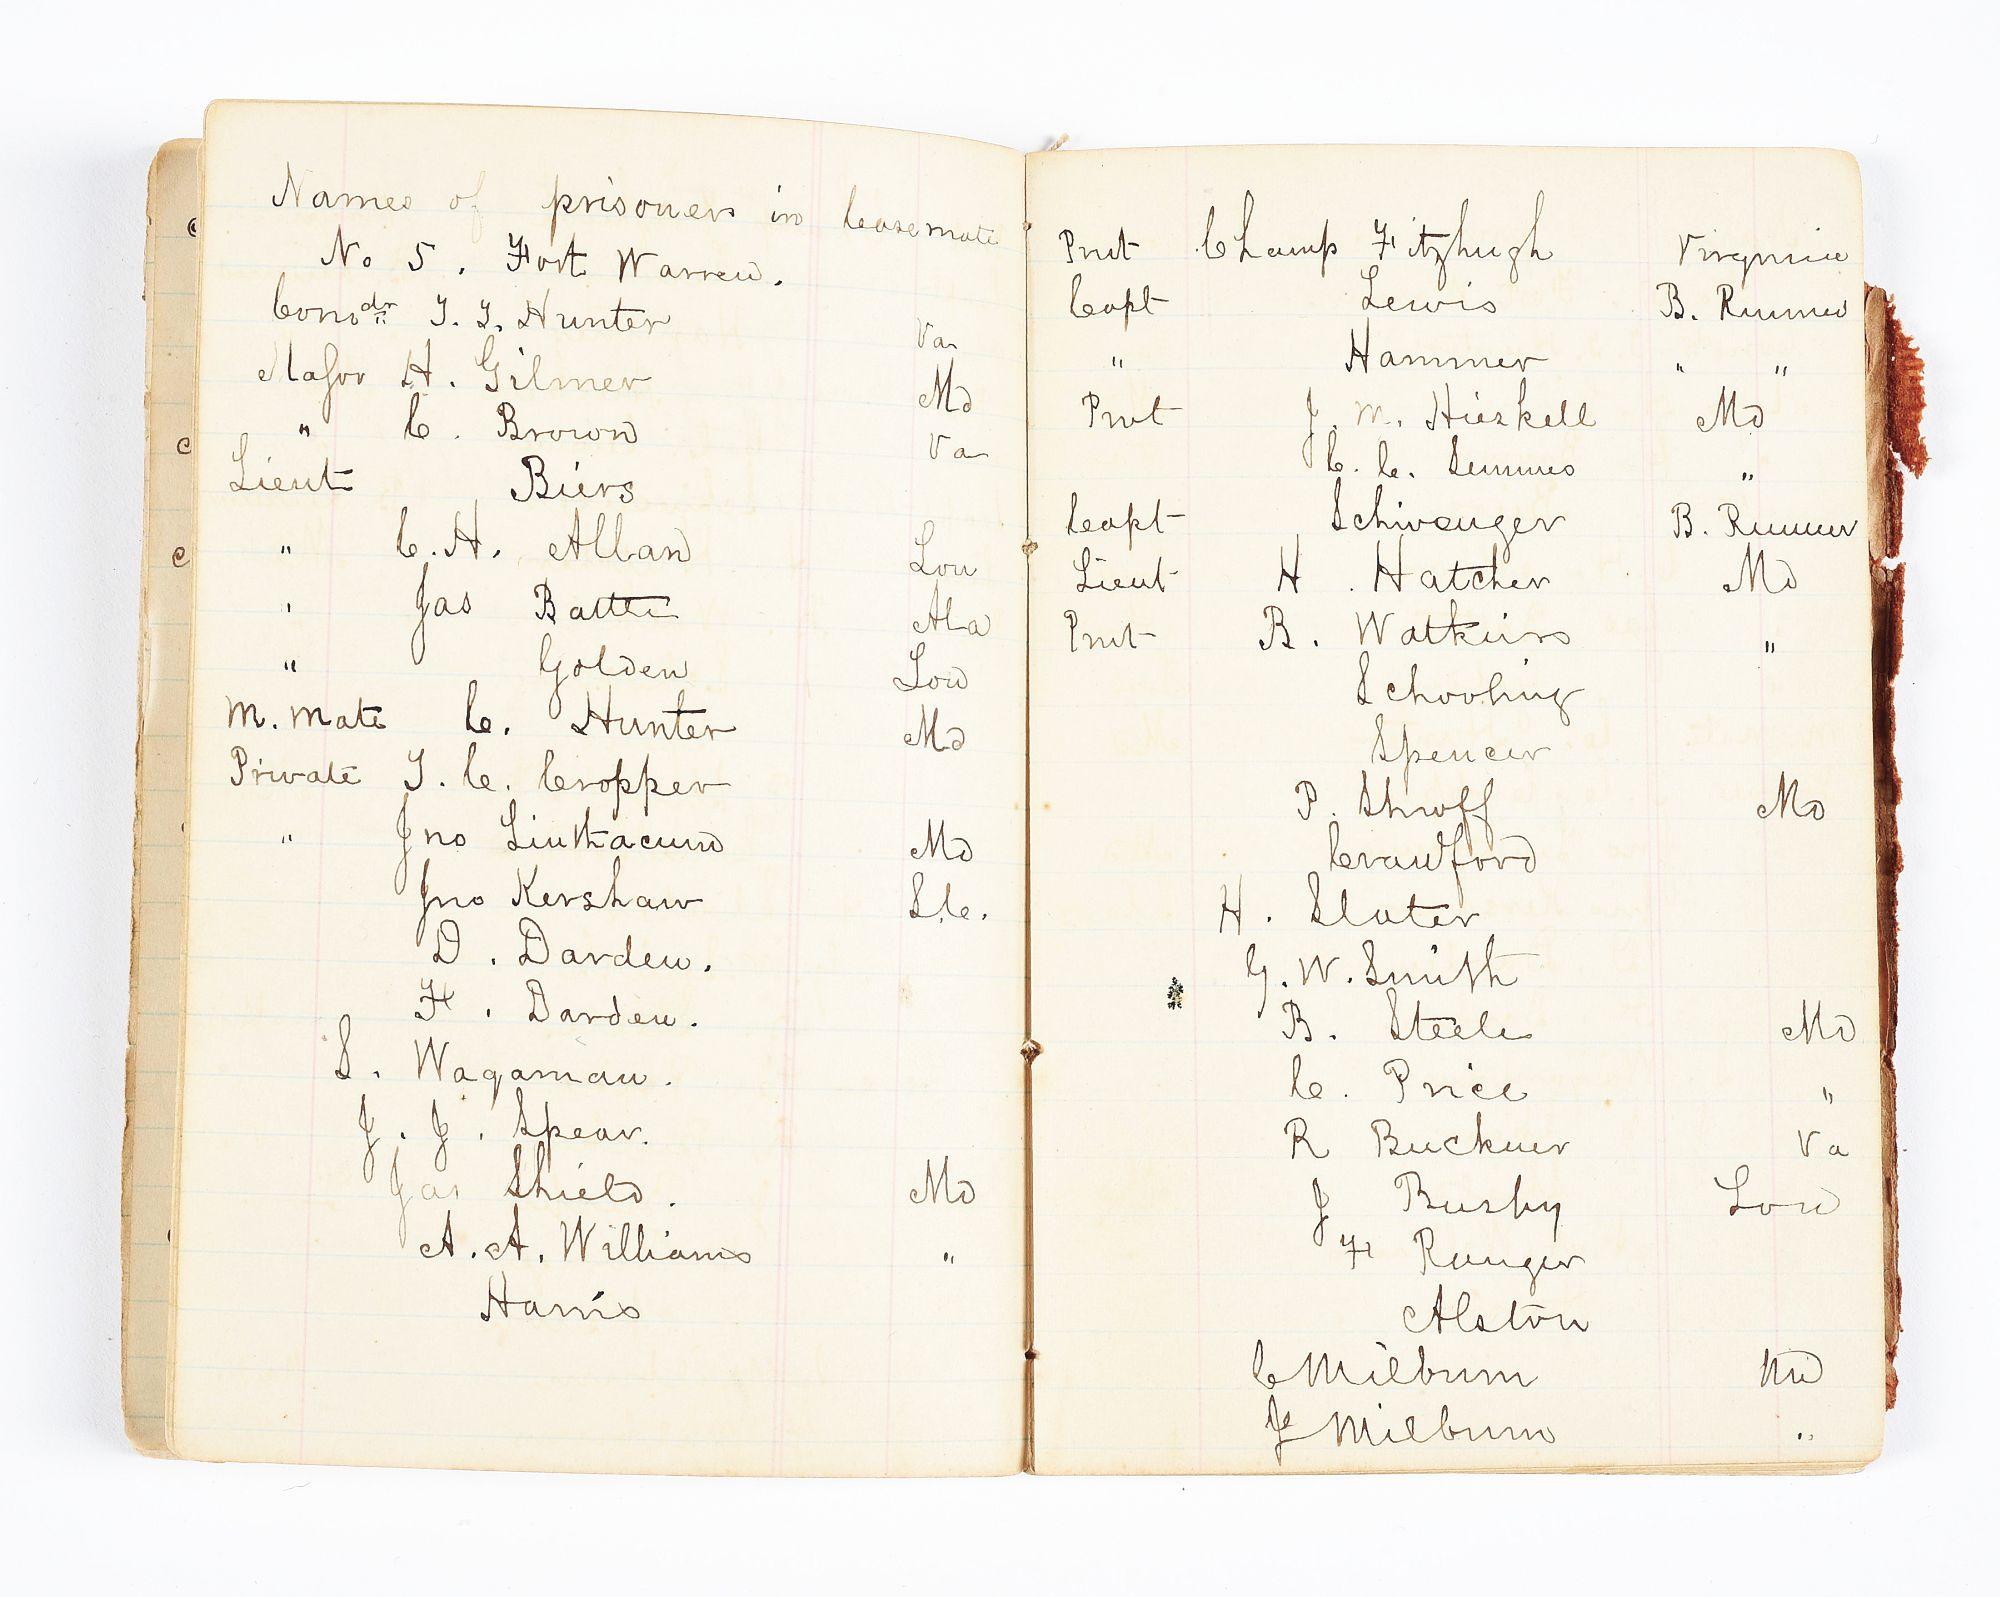 Names of prisoners in Casemate
No 5. Fort Warren.
Comdr T. T. Hunter Va
Major H. Gilmer Md
" C. Brown Va
Lieut Biers
" C. H. Allan Lou
" Jas Battle Ala
" Golden Lou
M. Mate C. Hunter Md
Private T. C. Cropper
" Jno Linthacum Md
Jno Kershaw S.C.
D. Darden.
F. Darden.
S. Wagaman.
J. J. Spear.
Jas Shield. Md
A. A. Williams "
Harris
Privt Champ Fitzhugh Virginia
Capt Lewis B. Runner
" Hammer " "
Privt J. M. Hieskell Md
C. C. Semmes "
Capt Schwenger B. Runner
Lieut H. Hatcher Md
Privt B. Watkins "
Schooling
Spencer
P. Shroff Md
Crawford
H. Slater
G. W. Smith
B. Steele Md
C. Price "
R Buckner Va
J Busby Lou
F Runger
Alston
C Milburn Md
J Milburn "